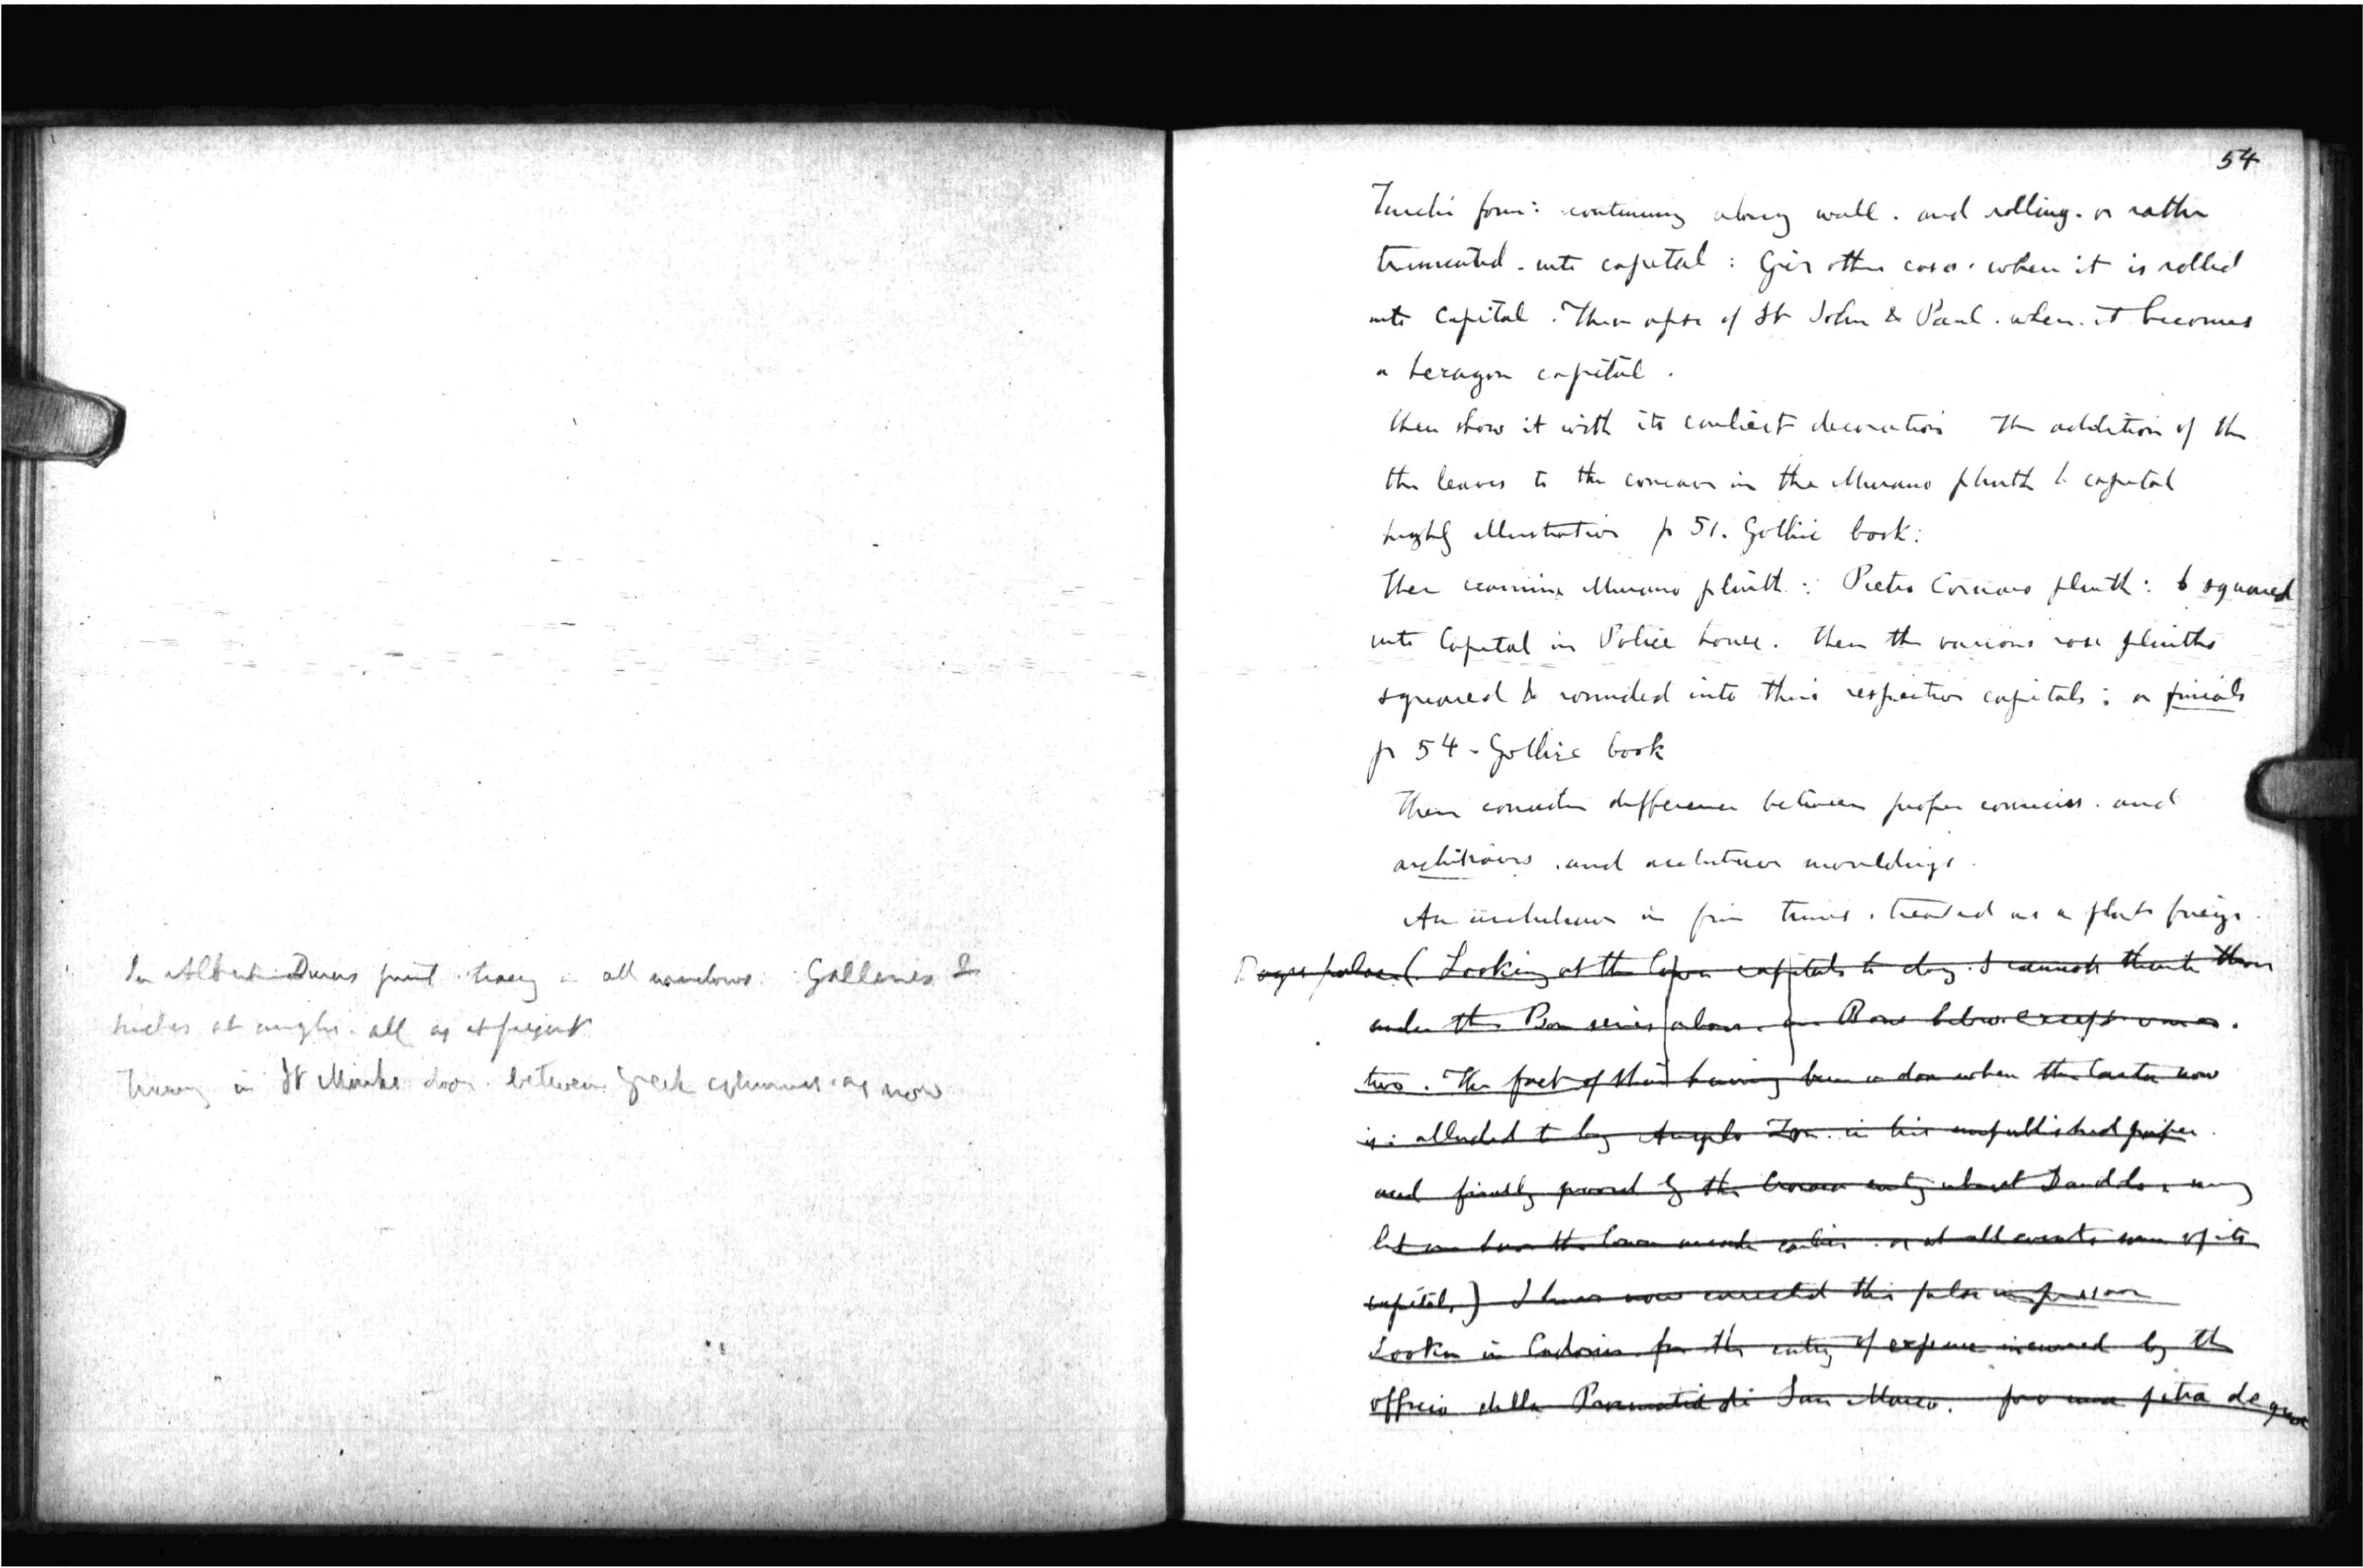 In Albert Durers print tracery in all windows: Galleries &
niches at angles. all as at present
Tracery in St Marks door. between Greek columns. as now
54
Turchi form: continuing along wall. and rolling. or rather
truncated. into capital: Give other cases. when it is rolled
into capital. Then apse of St John & Paul. when it becomes
a hexagon capital.
then show it with its earliest decoration The addition of the
the leaves to the concave in the Murano plinth & capital
highly illustrative p 51. Gothic book:
Then examine Murano plinth: Pietro Cornaro plinth: & squared
into Capital in Police house. Then the various rose plinths
squared & rounded into their respective capitals: or finials
p 54 - Gothic book
Then consider difference between proper cornices. and
architraves. and architrave mouldings.
An architrave in fine times. treated as a flat frieze.
Doges palace (. Looking at the lower capitals to day. I cannot think those
under the Bon series above. are Bons below except one or
two. The fact of their having been a door when the Carta now
is: alluded to by Angelo Zon. in his unpublished paper.
and finally proved by the entry about Dandolo. may
let me have the lower arcade earlier. or at all events some of its
capitals) I have now corrected this
Look in Cadorin for the entry of expense incurred by the
officio della di San Marco. pro una petra de qua